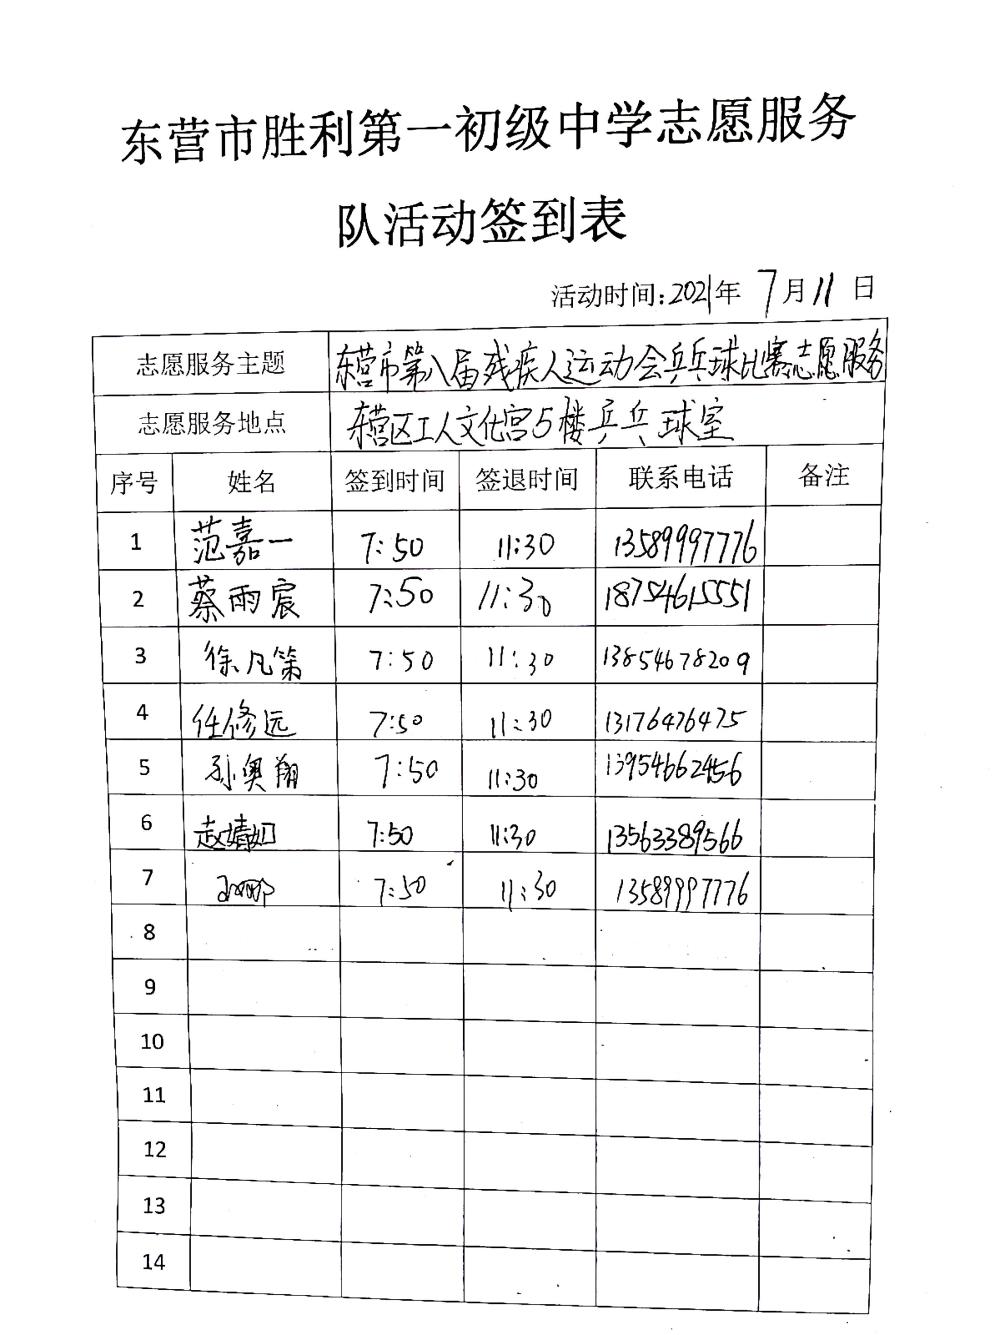 东营市胜利第一初级中学志愿服务
队活动签到表
活动时间:2021年 7月11 日
志愿服务主题 东营市第八届残疾人运动会乒乓球比赛志愿服务
志愿服务地点 东营区工人文化宫5楼乒乓球室
序号 姓名 签到时间 签退时间 联系电话 备注
1 范嘉一 7:50 11:30 13589997776
2 蔡雨宸 7:50 11:30 18754615551
3 徐凡第 7:50 11:30 13854678209
4 任修远 7:50 11:30 13176476475
5 孙奥翔 7:50 11:30 13954662456
6 赵婧如 7:50 11:30 13563389566
7 7:50 11:30 13589997776
8
9
10
11
12
13
14